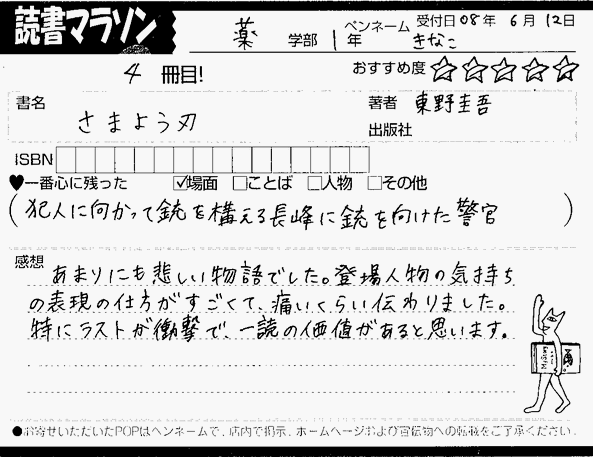 読書マラソン
薬 学部 1年 ペンネーム きなこ 受付日 08年 6月 12日
4 冊目! おすすめ度 ☆☆☆☆☆
書名 さまよう刃
著者 東野圭吾
出版社
ISBN
♥一番心に残った ☑場面 □ことば □人物 □その他
(犯人に向かって銃を構える長峰に銃を向けた警官)
感想 あまりにも悲しい物語でした。登場人物の気持ち
の表現の仕方がすごくて、痛いくらい伝わりました。
特にラストが衝撃で、一読の価値があると思います。
●お寄せいただいたPOPはペンネームで、店内で掲示、ホームページおよび宣伝物への転載をご了承ください。